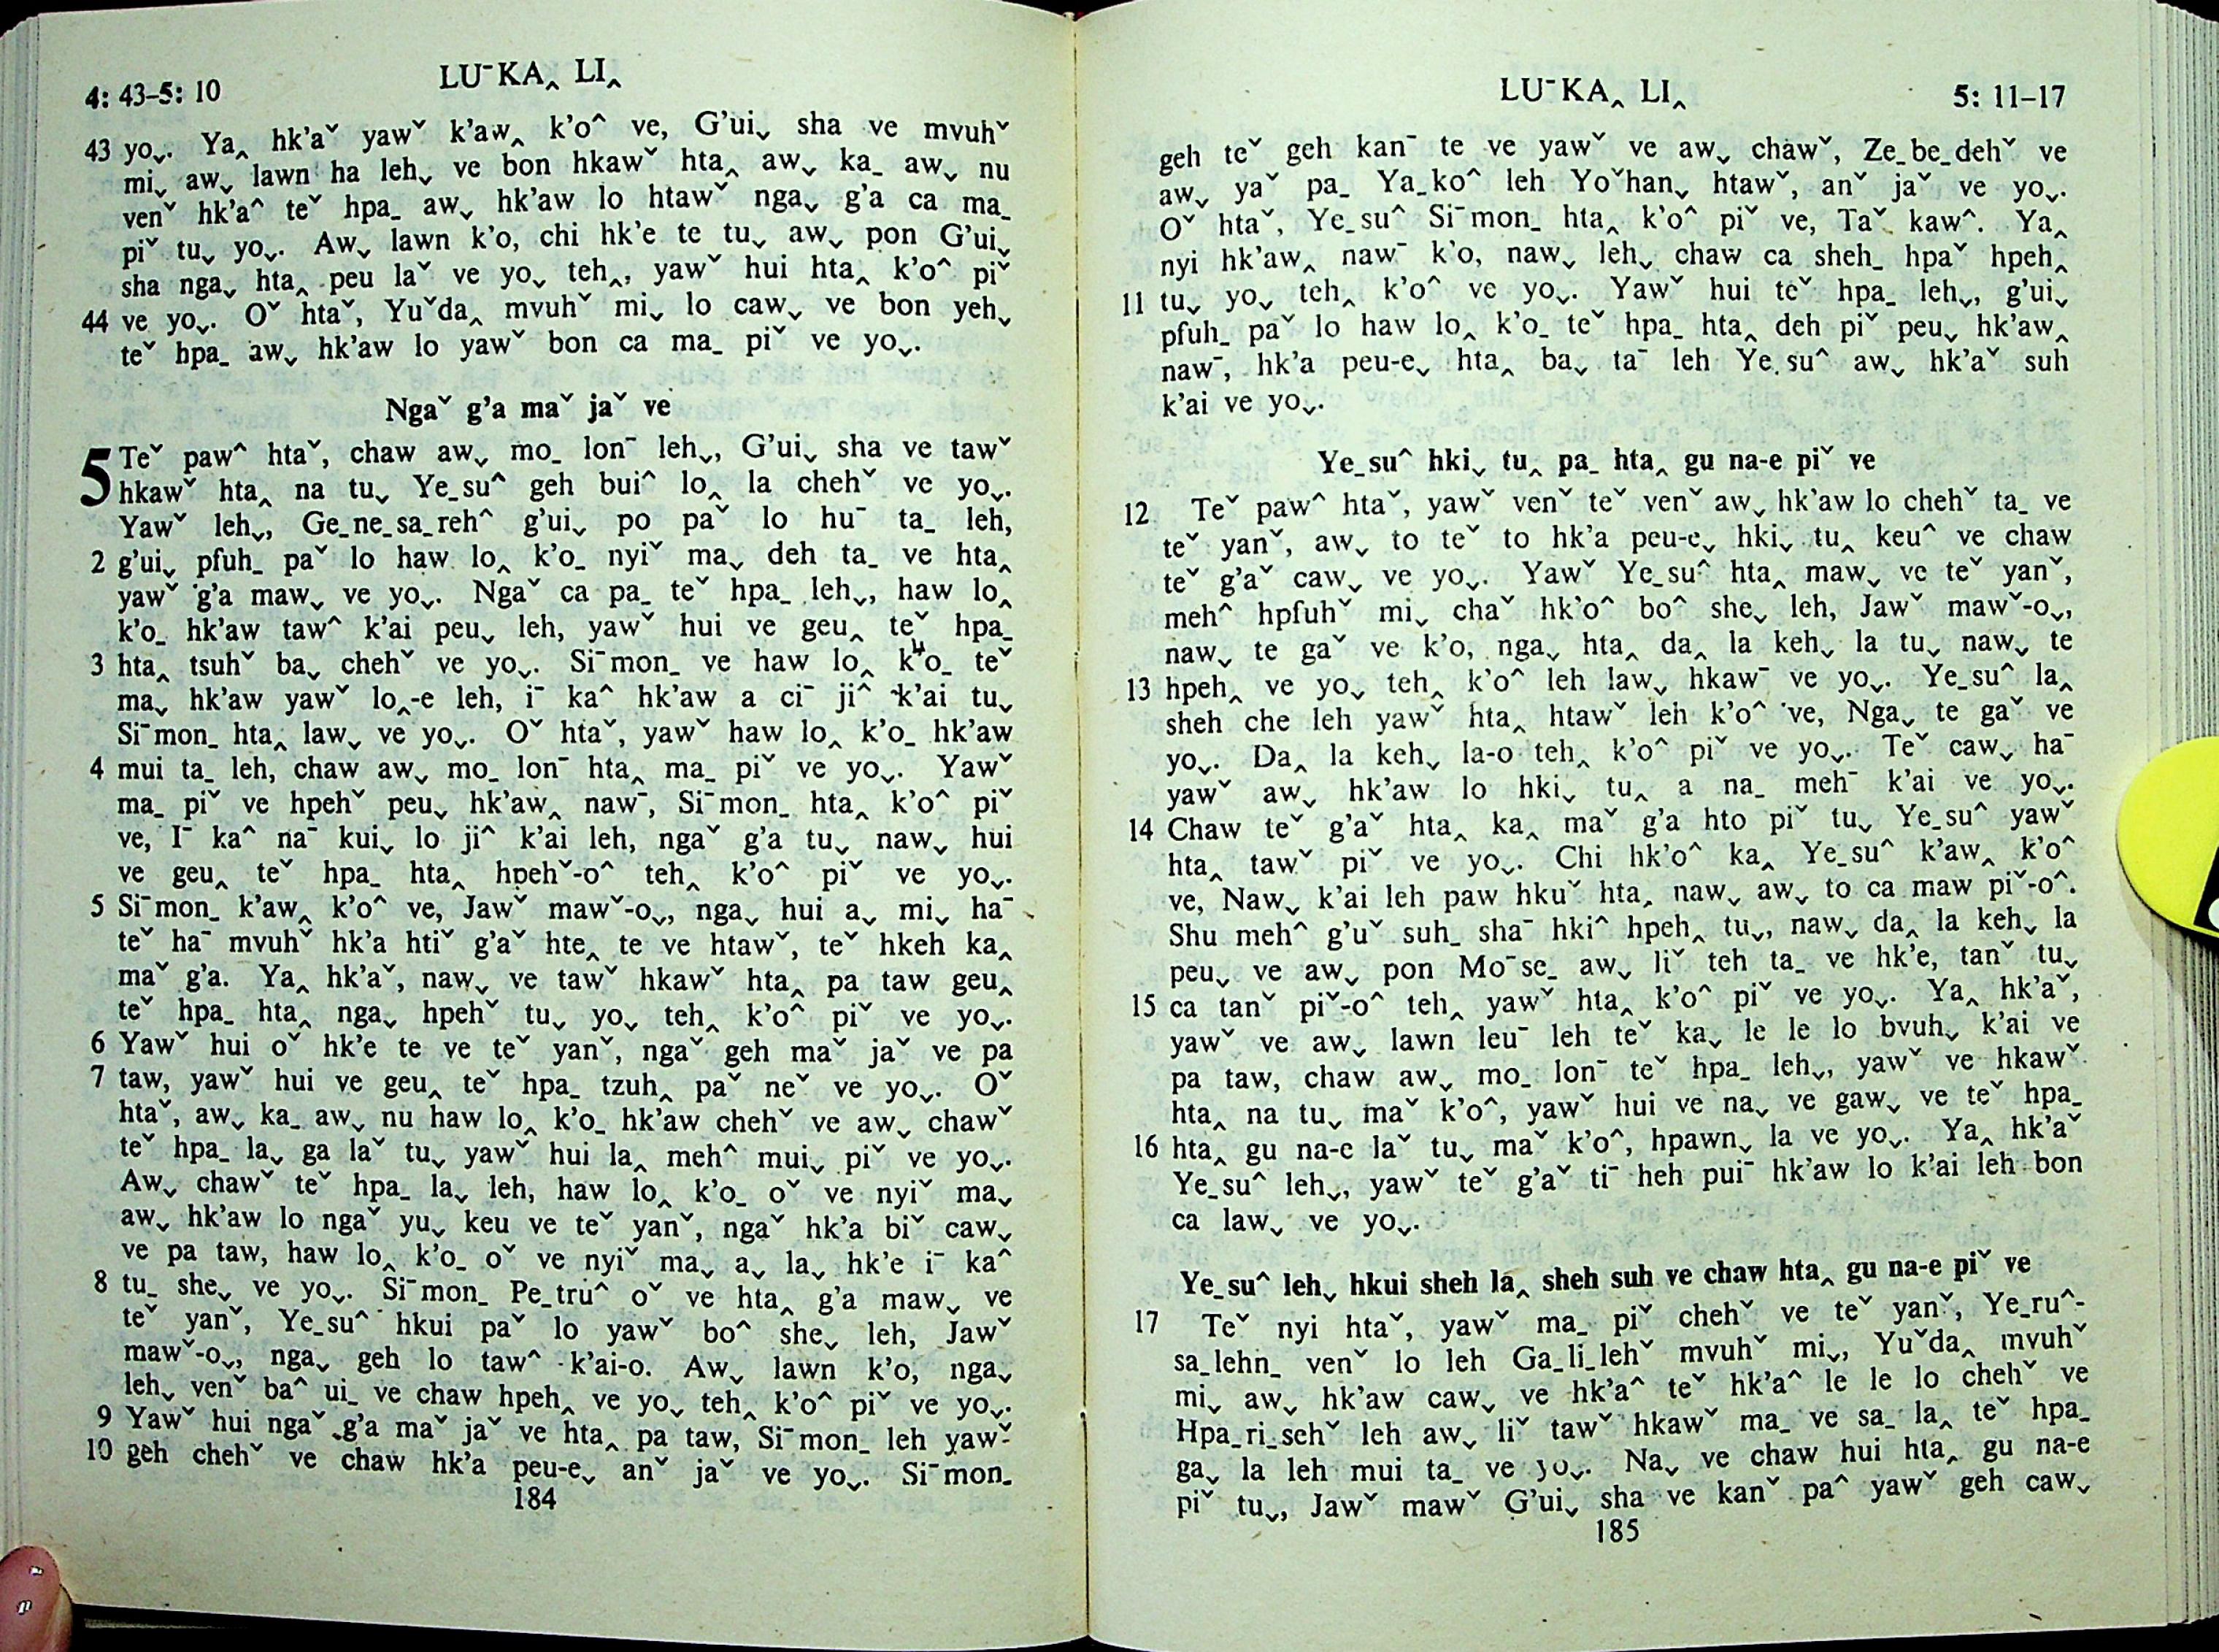 4: 43–5: 10
LUˉKA‸ LI‸
43 yoˬ. Ya‸ hk'aˇ yawˇ k'aw‸ k'o^ ve, G'uiˬ sha ve mvuhˇ
miˬ awˬ lawn ha lehˬ ve bon hkawˇ hta‸ aw‸ ka_ awˬ nu
venˇ hk'a^ teˇ hpa_ awˬ hk'aw lo htawˇ ngaˬ g'a ca ma_
piˇ tuˬ yoˬ. Awˬ lawn k'o, chi hk'e te tuˬ awˬ pon G'uiˬ
sha ngaˬ hta‸ peu laˇ ve yoˬ teh‸, yawˇ hui hta‸ k'o^ piˇ
44 ve yoˬ. Oˇ htaˇ, Yuˇda‸ mvuhˇ miˬ lo cawˬ ve bon yehˬ
teˇ hpa_ awˬ hk'aw lo yawˇ bon ca ma_ piˇ ve yoˬ.
Ngaˇ g'a maˇ jaˇ ve
5 Teˇ paw^ htaˇ, chaw awˬ mo_ lonˉ lehˬ, G'uiˬ sha ve tawˇ
hkawˇ hta‸ na tuˬ Ye_su^ geh bui^ lo‸ la chehˇ ve yoˬ.
Yawˇ lehˬ, Ge_ne_sa_reh^ g'uiˬ po paˇ lo huˉ ta_ leh,
2 g'uiˬ pfuh_ paˇ lo haw lo‸ k'o_ nyiˇ maˬ deh ta_ ve hta‸
yawˇ g'a mawˬ ve yoˬ. Ngaˇ ca pa_ teˇ hpa_ lehˬ, haw lo‸
k'o_ hk'aw taw^ k'ai peuˬ leh, yawˇ hui ve geu‸ teˇ hpa_
3 hta‸ tsuhˇ baˬ chehˇ ve yoˬ. Siˉmon_ ve haw lo‸ k'o_ teˇ
maˬ hk'aw yawˇ lo‸-e leh, iˉ ka^ hk'aw a ciˉ ji^ k'ai tuˬ
Siˉmon_ hta‸ lawˬ ve yoˬ. Oˇ htaˇ, yawˇ haw lo‸ k'o_ hk'aw
4 mui ta_ leh, chaw awˬ mo_ lonˉ hta‸ ma_ piˇ ve yoˬ. Yawˇ
ma_ piˇ ve hpehˇ peuˬ hk'aw‸ nawˉ, Siˉmon_ hta‸ k'o^ piˇ
ve, Iˉ ka^ naˉ kuiˬ lo ji^ k'ai leh, ngaˇ g'a tuˬ nawˬ hui
ve geu‸ teˇ hpa_ hta‸ hpehˇ-o^ teh‸ k'o^ piˇ ve yoˬ.
5 Siˉmon_ k'aw‸ k'o^ ve, Jawˇ mawˇ-oˬ, ngaˬ hui aˬ miˬ haˉ
teˇ haˉ mvuhˇ hk'a htiˇ g'aˇ hte‸ te ve htawˇ, teˇ hkeh ka‸
maˇ g'a. Ya‸ hk'aˇ, nawˬ ve tawˇ hkawˇ hta‸ pa taw geu‸
teˇ hpa_ hta‸ ngaˬ hpehˇ tuˬ yoˬ teh‸ k'o^ piˇ ve yoˬ.
6 Yawˇ hui oˇ hk'e te ve teˇ yanˇ, ngaˇ geh maˇ jaˇ ve pa
7 taw, yawˇ hui ve geu‸ teˇ hpa_ tzuh‸ paˇ neˇ ve yoˬ. Oˇ
htaˇ, awˬ ka_ awˬ nu haw lo‸ k'o_ hk'aw chehˇ ve awˬ chawˇ
teˇ hpa_ laˬ ga laˇ tuˬ yawˇ hui la‸ meh^ muiˬ piˇ ve yoˬ.
Awˬ chawˇ teˇ hpa_ laˬ leh, haw lo‸ k'o_ oˇ ve nyiˇ maˬ
awˬ hk'aw lo ngaˇ yuˬ keu ve teˇ yanˇ, ngaˇ hk'a biˇ cawˬ
ve pa taw, haw lo‸ k'o_ oˇ ve nyiˇ maˬ aˬ laˬ hk'e iˉ ka^
8 tu_ sheˬ ve yoˬ. Siˉmon_ Pe_tru^ oˇ ve hta‸ g'a mawˬ ve
teˇ yanˇ, Ye_su^ hkui paˇ lo yawˇ bo^ sheˬ leh, Jawˇ
mawˇ-oˬ, ngaˬ geh lo taw^ k'ai-o. Awˬ lawn k'o, ngaˬ
lehˬ venˇ ba^ ui_ ve chaw hpeh‸ ve yoˬ teh‸ k'o^ piˇ ve yoˬ.
9 Yawˇ hui ngaˇ g'a maˇ jaˇ ve hta‸ pa taw, Siˉmon_ leh yawˇ
10 geh chehˇ ve chaw hk'a peu-eˬ anˇ jaˇ ve yoˬ. Siˉmon_
184
LUˉKA‸ LI‸
5: 11–17
geh teˇ geh kanˉ te ve yawˇ ve awˬ chawˇ, Ze_be_dehˇ ve
awˬ yaˇ pa_ Ya_ko^ leh Yoˇhanˬ htawˇ, anˇ jaˇ ve yoˬ.
Oˇ htaˇ, Ye_su^ Siˉmon_ hta‸ k'o^ piˇ ve, Taˇ kaw^. Ya‸
nyi hk'aw‸ nawˉ k'o, nawˬ lehˬ chaw ca sheh_ hpaˇ hpeh‸
11 tuˬ yoˬ teh‸ k'o^ ve yoˬ. Yawˇ hui teˇ hpa_ lehˬ, g'uiˬ
pfuh_ paˇ lo haw lo‸ k'o_ teˇ hpa_ hta‸ deh piˇ peuˬ hk'aw‸
nawˉ, hk'a peu-eˬ hta‸ baˬ taˉ leh Ye_su^ awˬ hk'aˇ suh
k'ai ve yoˬ.
Ye_su^ hkiˬ tu‸ pa_ hta‸ gu na-e piˇ ve
12 Teˇ paw^ htaˇ, yawˇ venˇ teˇ venˇ awˬ hk'aw lo chehˇ ta_ ve
teˇ yanˇ, awˬ to teˇ to hk'a peu-eˬ hkiˬ tu‸ keu^ ve chaw
teˇ g'aˇ cawˬ ve yoˬ. Yawˇ Ye_su^ hta‸ mawˬ ve teˇ yanˇ,
meh^ hpfuhˇ miˬ chaˇ hk'o^ bo^ sheˬ leh, Jawˇ mawˇ-oˬ,
nawˬ te gaˇ ve k'o, ngaˬ hta‸ da‸ la kehˬ la tuˬ nawˬ te
13 hpeh‸ ve yoˬ teh‸ k'o^ leh lawˬ hkawˉ ve yoˬ. Ye_su^ la‸
sheh che leh yawˇ hta‸ htawˇ leh k'o^ ve, Ngaˬ te gaˇ ve
yoˬ. Da‸ la kehˬ la-o teh‸ k'o^ piˇ ve yoˬ. Teˇ cawˬ haˉ
yawˇ awˬ hk'aw lo hkiˬ tu‸ a na_ mehˉ k'ai ve yoˬ.
14 Chaw teˇ g'aˇ hta‸ ka‸ maˇ g'a hto piˇ tuˬ Ye_su^ yawˇ
hta‸ tawˇ piˇ ve yoˬ. Chi hk'o^ ka‸ Ye_su^ k'aw‸ k'o^
ve, Nawˬ k'ai leh paw hkuˇ hta‸ nawˬ awˬ to ca maw piˇ-o^.
Shu meh^ g'uˇ suh_ shaˉ hki^ hpeh‸ tuˬ, nawˬ da‸ la kehˬ la
peuˬ ve awˬ pon Moˉse_ awˬ liˇ teh ta_ ve hk'e, tanˇ tuˬ
15 ca tanˇ piˇ-o^ teh‸ yawˇ hta‸ k'o^ piˇ ve yoˬ. Ya‸ hk'aˇ,
yawˇ ve awˬ lawn leuˉ leh teˇ kaˬ le le lo bvuhˬ k'ai ve
pa taw, chaw awˬ mo_ lonˉ teˇ hpa_ lehˬ, yawˇ ve hkawˇ
hta‸ na tuˬ maˇ k'o^, yawˇ hui ve naˬ ve gawˬ ve teˇ hpa_
16 hta‸ gu na-e laˇ tuˬ maˇ k'o^, hpawnˬ la ve yoˬ. Ya‸ hk'aˇ
Ye_su^ lehˬ, yawˇ teˇ g'aˇ tiˉ heh puiˉ hk'aw lo k'ai leh bon
ca lawˬ ve yoˬ.
Ye_su^ lehˬ hkui sheh la‸ sheh suh ve chaw hta‸ gu na-e piˇ ve
17 Teˇ nyi htaˇ, yawˇ ma_ piˇ chehˇ ve teˇ yanˇ, Ye_ru^-
sa_lehn_ venˇ lo leh Ga_li_lehˇ mvuhˇ miˬ, Yuˇda‸ mvuhˇ
miˬ awˬ hk'aw cawˬ ve hk'a^ teˇ hk'a^ le le lo chehˇ ve
Hpa_ri_sehˇ leh awˬ liˇ tawˇ hkawˇ ma_ ve sa_ la‸ teˇ hpa_
gaˬ la leh mui ta_ ve yoˬ. Naˬ ve chaw hui hta‸ gu na-e
piˇ tuˬ, Jawˇ mawˇ G'uiˬ sha ve kanˇ pa^ yawˇ geh cawˬ
185